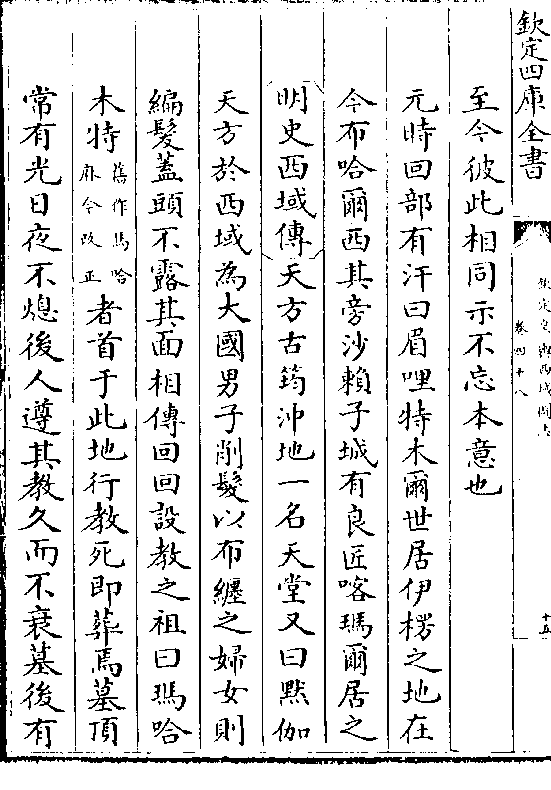 欽定四庫全書
欽定皇輿西域圖志
卷四十八
十五
至今彼此相同示不忘本意也
元時回部有汗曰眉哩特木爾世居伊楞之地在
今布哈爾西其旁沙賴子城有良匠喀瑪爾居之
明史西域傳天方古筠沖地一名天堂又曰黙伽
天方於西域為大國男子削髮以布纏之婦女則
編髮蓋頭不露其面相傳回回設教之祖曰瑪哈
木特舊作馬哈麻今改正者首于此地行教死即葬焉墓頂
常有光日夜不熄後人遵其教久而不衰墓後有